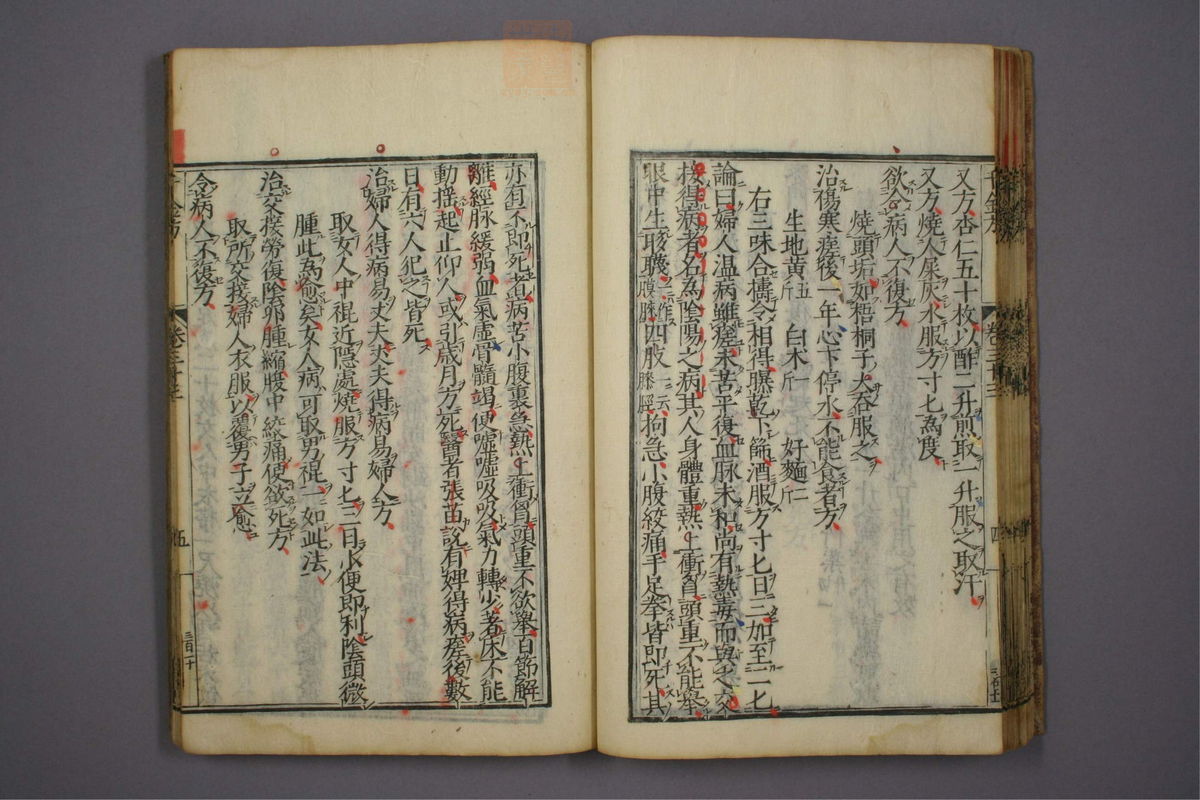 又方杏仁五十枚以酢二升煎取一升服之取汗
又方燒人屎灰水服方寸匕為度
欲令病人不復方
燒頭垢如梧桐子大吞服之
治傷寒瘥後一年心下停水不能食者方
生地黄五斤 白朮一斤 好麵二斤
右三味合擣令相得曝乾下篩酒服方寸匕日三加至二匕
論曰婦人温病雖瘥未苦平復血脉未和尚有熱毒而與之交
接得病者名為陰陽之病其人身體重熱上衝胷頭重不能舉
眼中生眵䁾四肢拘急小腹絞痛手足拳皆即死其
亦有不即死者病苦小腹裏急熱上衝胷頭重不欲舉百節解
離經脉緩弱血氣虚骨髓竭便噓噓吸吸氣力轉少著床不能
動揺起止仰人或引歳月方死醫者張苗說有婢得病瘥後數
日有六人犯之皆死
治婦人得病易丈夫丈夫得病易婦人方
取女人中裩近隱處燒服方寸匕三日小便即利陰頭微
腫此為愈矣女人病可取男裩一如此法
治交接勞復陰卵腫縮腹中絞痛便欲死方
取所交接婦人衣服以覆男子立愈
令病人不復方
卷三十三
四
五